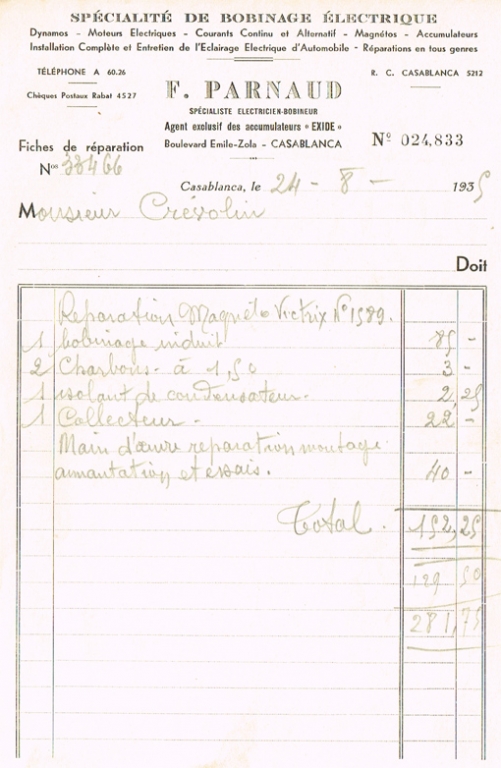 SPÉCIALITÉ DE BOBINAGE ÉLECTRIQUE
Dynamos - Moteurs Electriques - Courants Continu et Alternatif - Magnétos - Accumulateurs
Installation Complète et Entretien de l'Eclairage Electrique d'Automobile - Réparations en tous genres
TÉLÉPHONE A 60.26
R. C. CASABLANCA 5212
Chèques Postaux Rabat 4527
F. PARNAUD
SPÉCIALISTE ELECTRICIEN-BOBINEUR
Agent exclusif des accumulateurs "EXIDE"
Boulevard Emile-Zola - CASABLANCA
Nº 024,833
Fiches de réparation
Nos 33466
Casablanca, le 24 - 8 - 1935
Monsieur Crévolin
Doit
Reparation Magnéto Victrix Nº 1589.
1 bobinage induit 85 -
2 Charbons - à 1,50 3 -
1 isolant de condensateur - 2,25
1 Collecteur - 22 -
Main d'œuvre reparation montage
aimantation et essais. 40 -
Total. 152,25
129 50
281,75